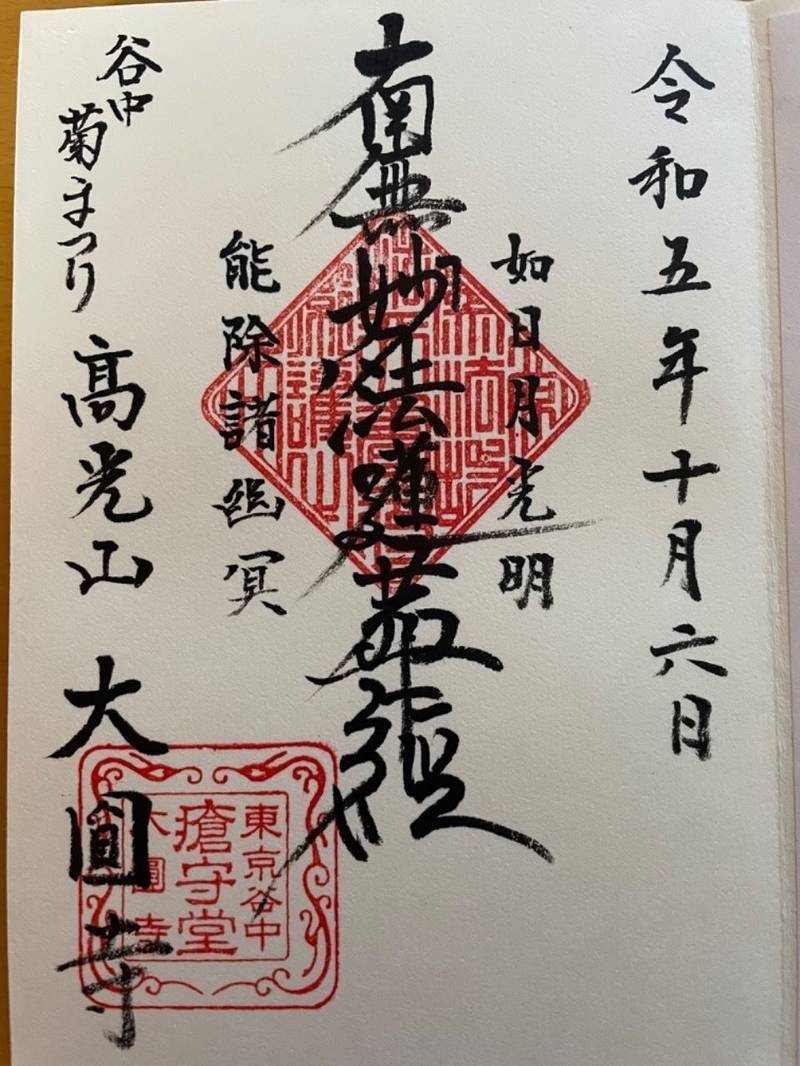 令和五年十月六日
如日月光明
南無妙法蓮華経
能除諸幽冥
谷中
菊まつり
高光山 大圓寺
東京谷中
瘡守堂
大圓寺